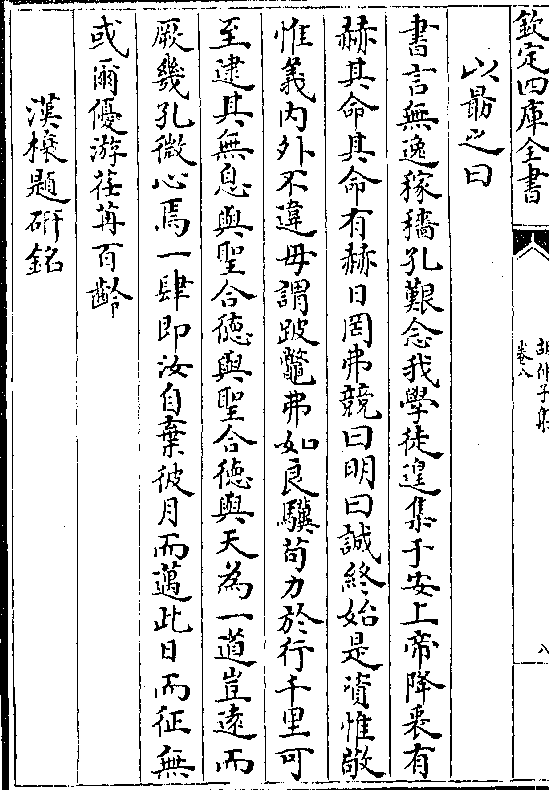 欽定四庫全書
胡仲子集
卷八
八
以勗之曰
書言無逸稼穡孔艱念我學徒遑集于安上帝降衷有
赫其命其命有赫日罔弗競曰明曰誠終始是資惟敬
惟義内外不違毋謂跛鼈弗如良驥苟力於行千里可
至逮其無息與聖合徳與聖合徳與天為一道豈逺而
厥幾孔微心焉一肆即汝自棄彼月而邁此日而征無
或爾優游荏苒百齡
漢榱題硏銘